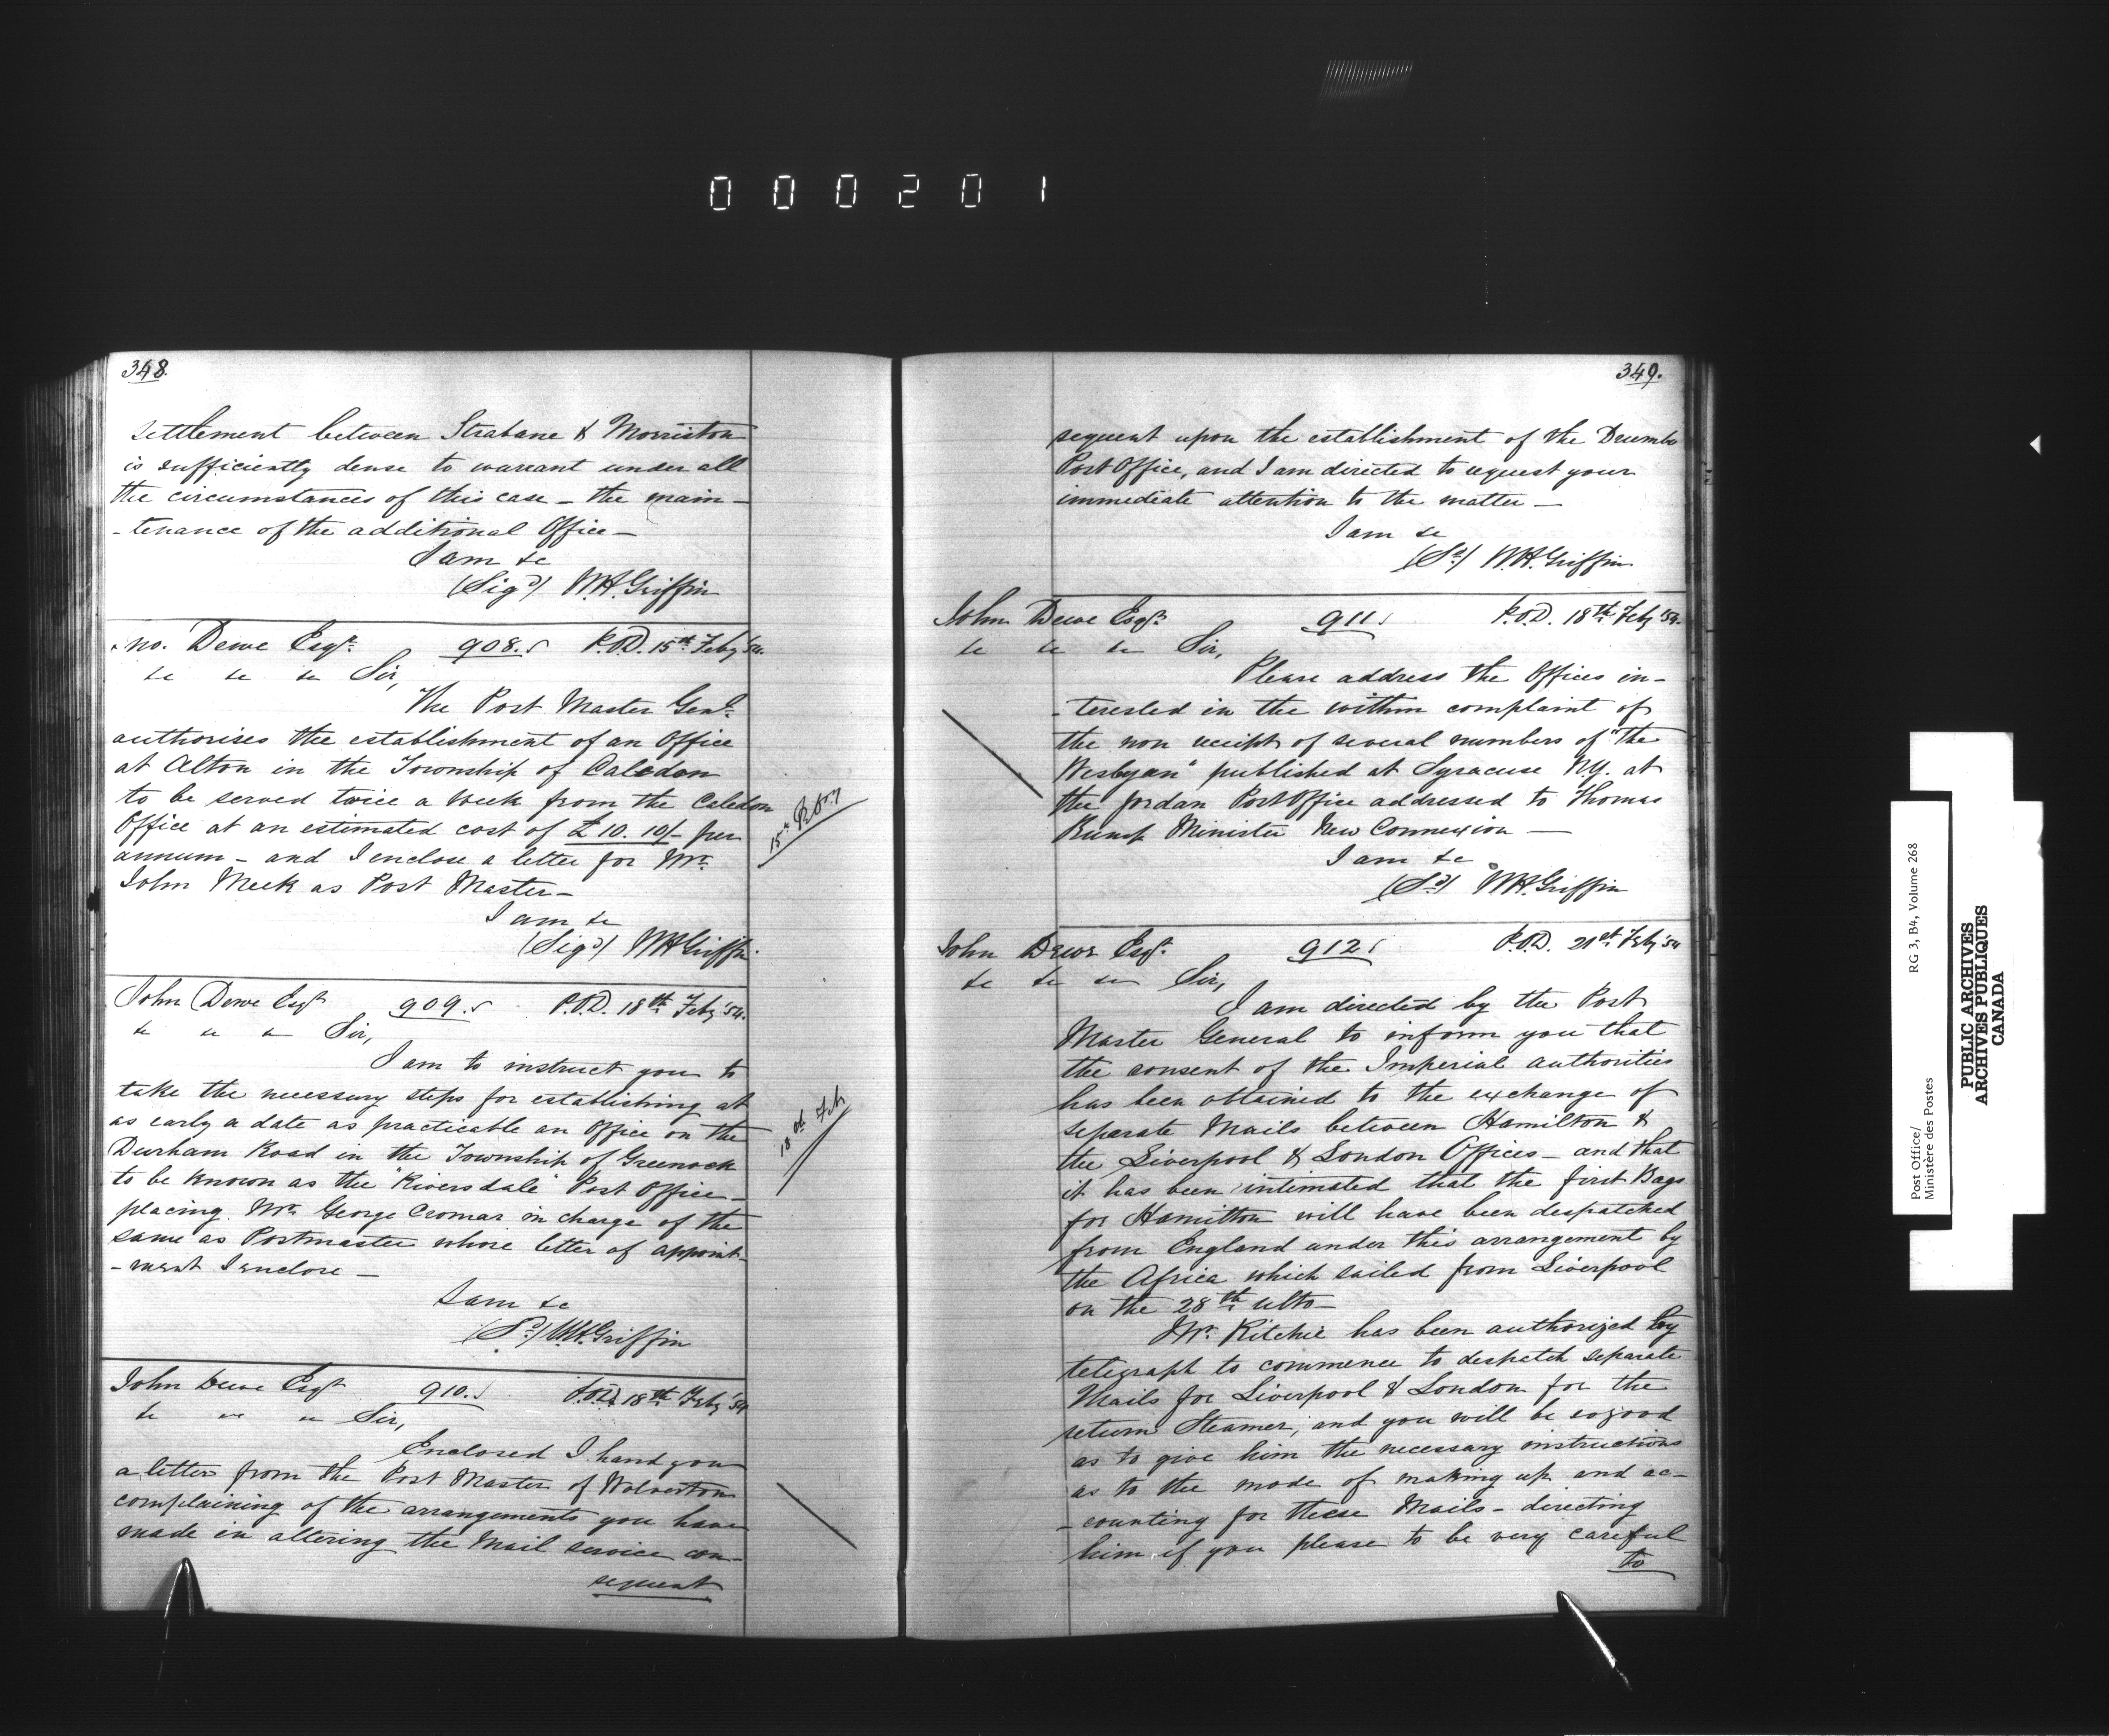 000201
348.
settlement between Strabane & Morriston
is sufficiently dense to warrant under all
the circumstances of this case - the main-
-tenance of the additional Office -
I am &c
(Sigd) W.H. Griffin
Jno. Dewe Esqr. 908. P.O.D. 15th Feby '54.
&c &c &c Sir,
The Post Master Genl.
authorises the establishment of an Office
at Alton in the Township of Caledon
to be served twice a week from the Caledon
Office at an estimated cost of £10.10/- per
annum - and I enclose a letter for Mr.
John Meek as Post Master -
I am &c
(Sigd) W.H. Griffin
15th
John Dewe Esqr 909. P.O.D. 18th Feby '54.
&c &c &c Sir,
I am to instruct you to
take the necessary steps for establishing at
as early a date as practicable an Office on the
Durham Road in the Township of Greenock
to be known as the "Riversdale" Post Office -
placing Mr. George Cromar in charge of the
same as Postmaster whose letter of appoint-
-ment I enclose -
I am &c
(Sd) W.H. Griffin
18th Feb
John Dewe Esqr 910. P.O.D. 18th Feby '54
&c &c &c Sir,
Enclosed I hand you
a letter from the Post Master of Wolverton
complaining of the arrangements you have
made in altering the Mail service con-
sequent
349.
sequent upon the establishment of the Drumbo
Post Office, and I am directed to request your
immediate attention to the matter -
I am &c
(Sd) W.H. Griffin
John Dewe Esqr. 911. P.O.D. 18th Feby '54.
&c &c &c Sir,
Please address the Offices in-
-terested in the within complaint of
the non receipt of several numbers of "the
Wesleyan" published at Syracuse N.Y. at
the Jordan Post Office addressed to Thomas
Rump Minister New Connexion -
I am &c
(Sd) W.H. Griffin
John Dewe Esqr. 912. P.O.D. 21st Feby '54
&c &c &c Sir,
I am directed by the Post
Master General to inform you that
the consent of the Imperial authorities
has been obtained to the exchange of
separate Mails between Hamilton &
the Liverpool & London Offices - and that
it has been intimated that the first Bags
for Hamilton will have been despatched
from England under this arrangement by
the Africa which sailed from Liverpool
on the 28th ulto -
Mr. Ritchie has been authorized by
telegraph to commence to despatch separate
Mails for Liverpool & London for the
return Steamer, and you will be so good
as to give him the necessary instructions
as to the mode of making up and ac-
-counting for these Mails - directing
him if you please to be very careful
to
Post Office/ RG 3, B4, Volume 268
Ministère des Postes
PUBLIC ARCHIVES
ARCHIVES PUBLIQUES
CANADA